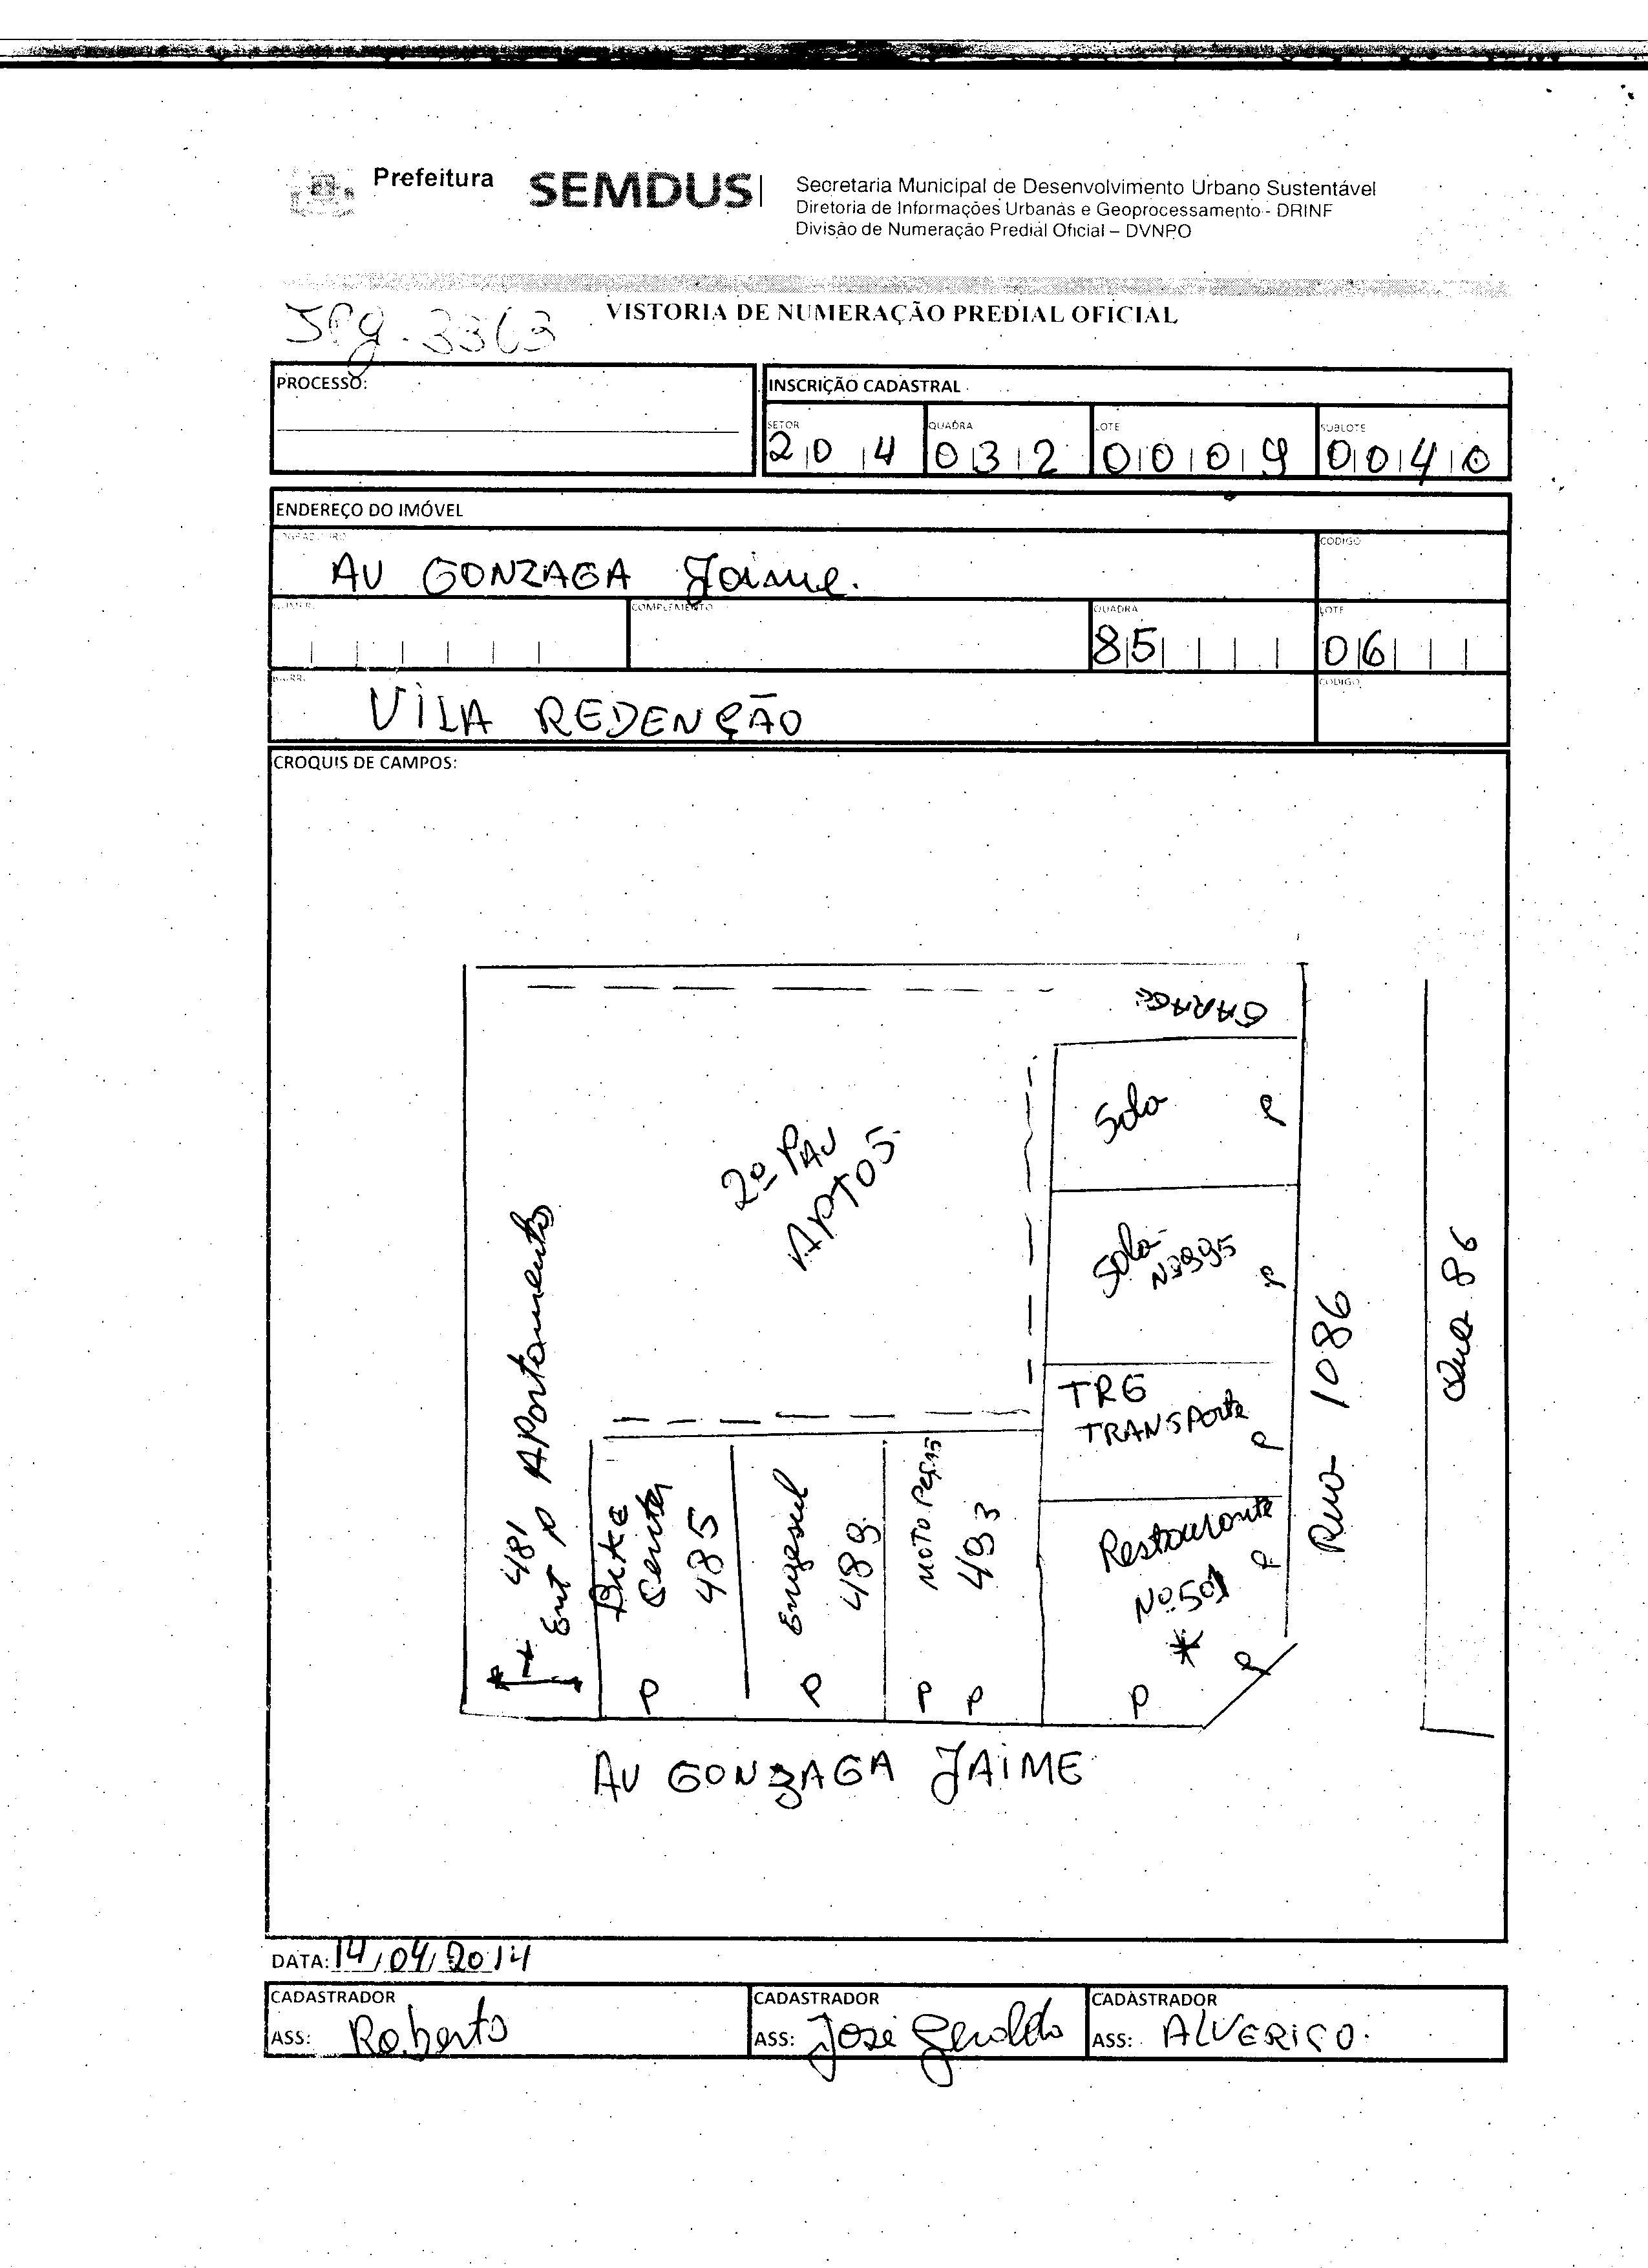 Prefeitura SEMDUS
Secretaria Municipal de Desenvolvimento Urbano Sustentável
Diretoria de Informações Urbanas e Geoprocessamento - DRINF
Divisão de Numeração Predial Oficial – DVNPO
Jpg. 3363
VISTORIA DE NUMERAÇÃO PREDIAL OFICIAL
PROCESSO:
INSCRIÇÃO CADASTRAL
SETOR QUADRA LOTE SUBLOTE
204 032 0009 0040
ENDEREÇO DO IMÓVEL
CODIGO
AV GONZAGA Jaime.
COMPLEMENTO QUADRA LOTE
85 06
CODIGO
VILA REDENÇÃO
CROQUIS DE CAMPOS:
GARAGE
Sala P
2º PAV
APTOS
Sala
Nº995 P
TRG
TRANSPORTE P
Restaurante
Nº 501 P
*
P
P
481
Ent P APartamento
Center
485
P
489
P
MOTO PEÇAS
493
P P
Rua 1086
Qua 86
AV GONZAGA JAIME
DATA: 14/04/2014
CADASTRADOR CADASTRADOR CADASTRADOR
ASS: Roberto ASS: José Geraldo ASS: ALVERICO.